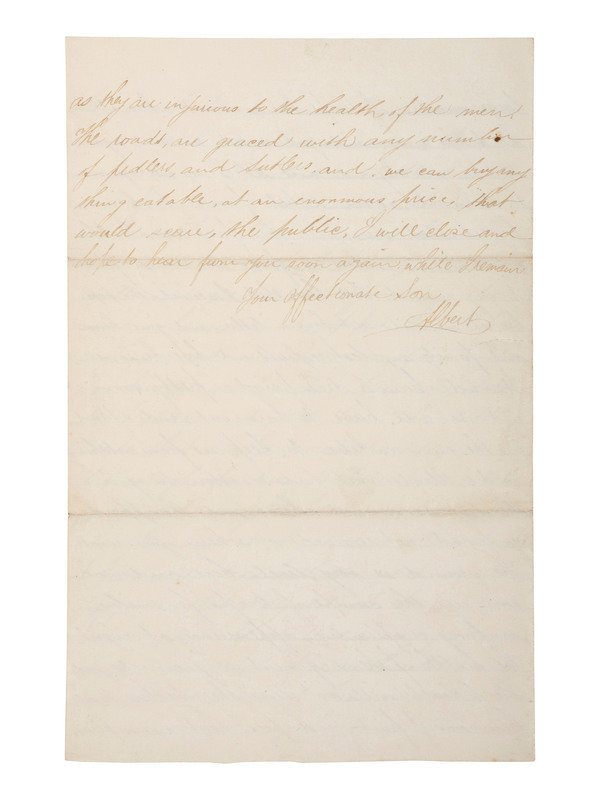 as they are injurious to the health of the men.
The roads, are graced with any number
of pedlers, and Sutlers, and, we can buy any
thing eatable, at an enormous price, that
would the public, I will close and
hope to hear from you soon again, while I remain
Your affectionate Son
Albert